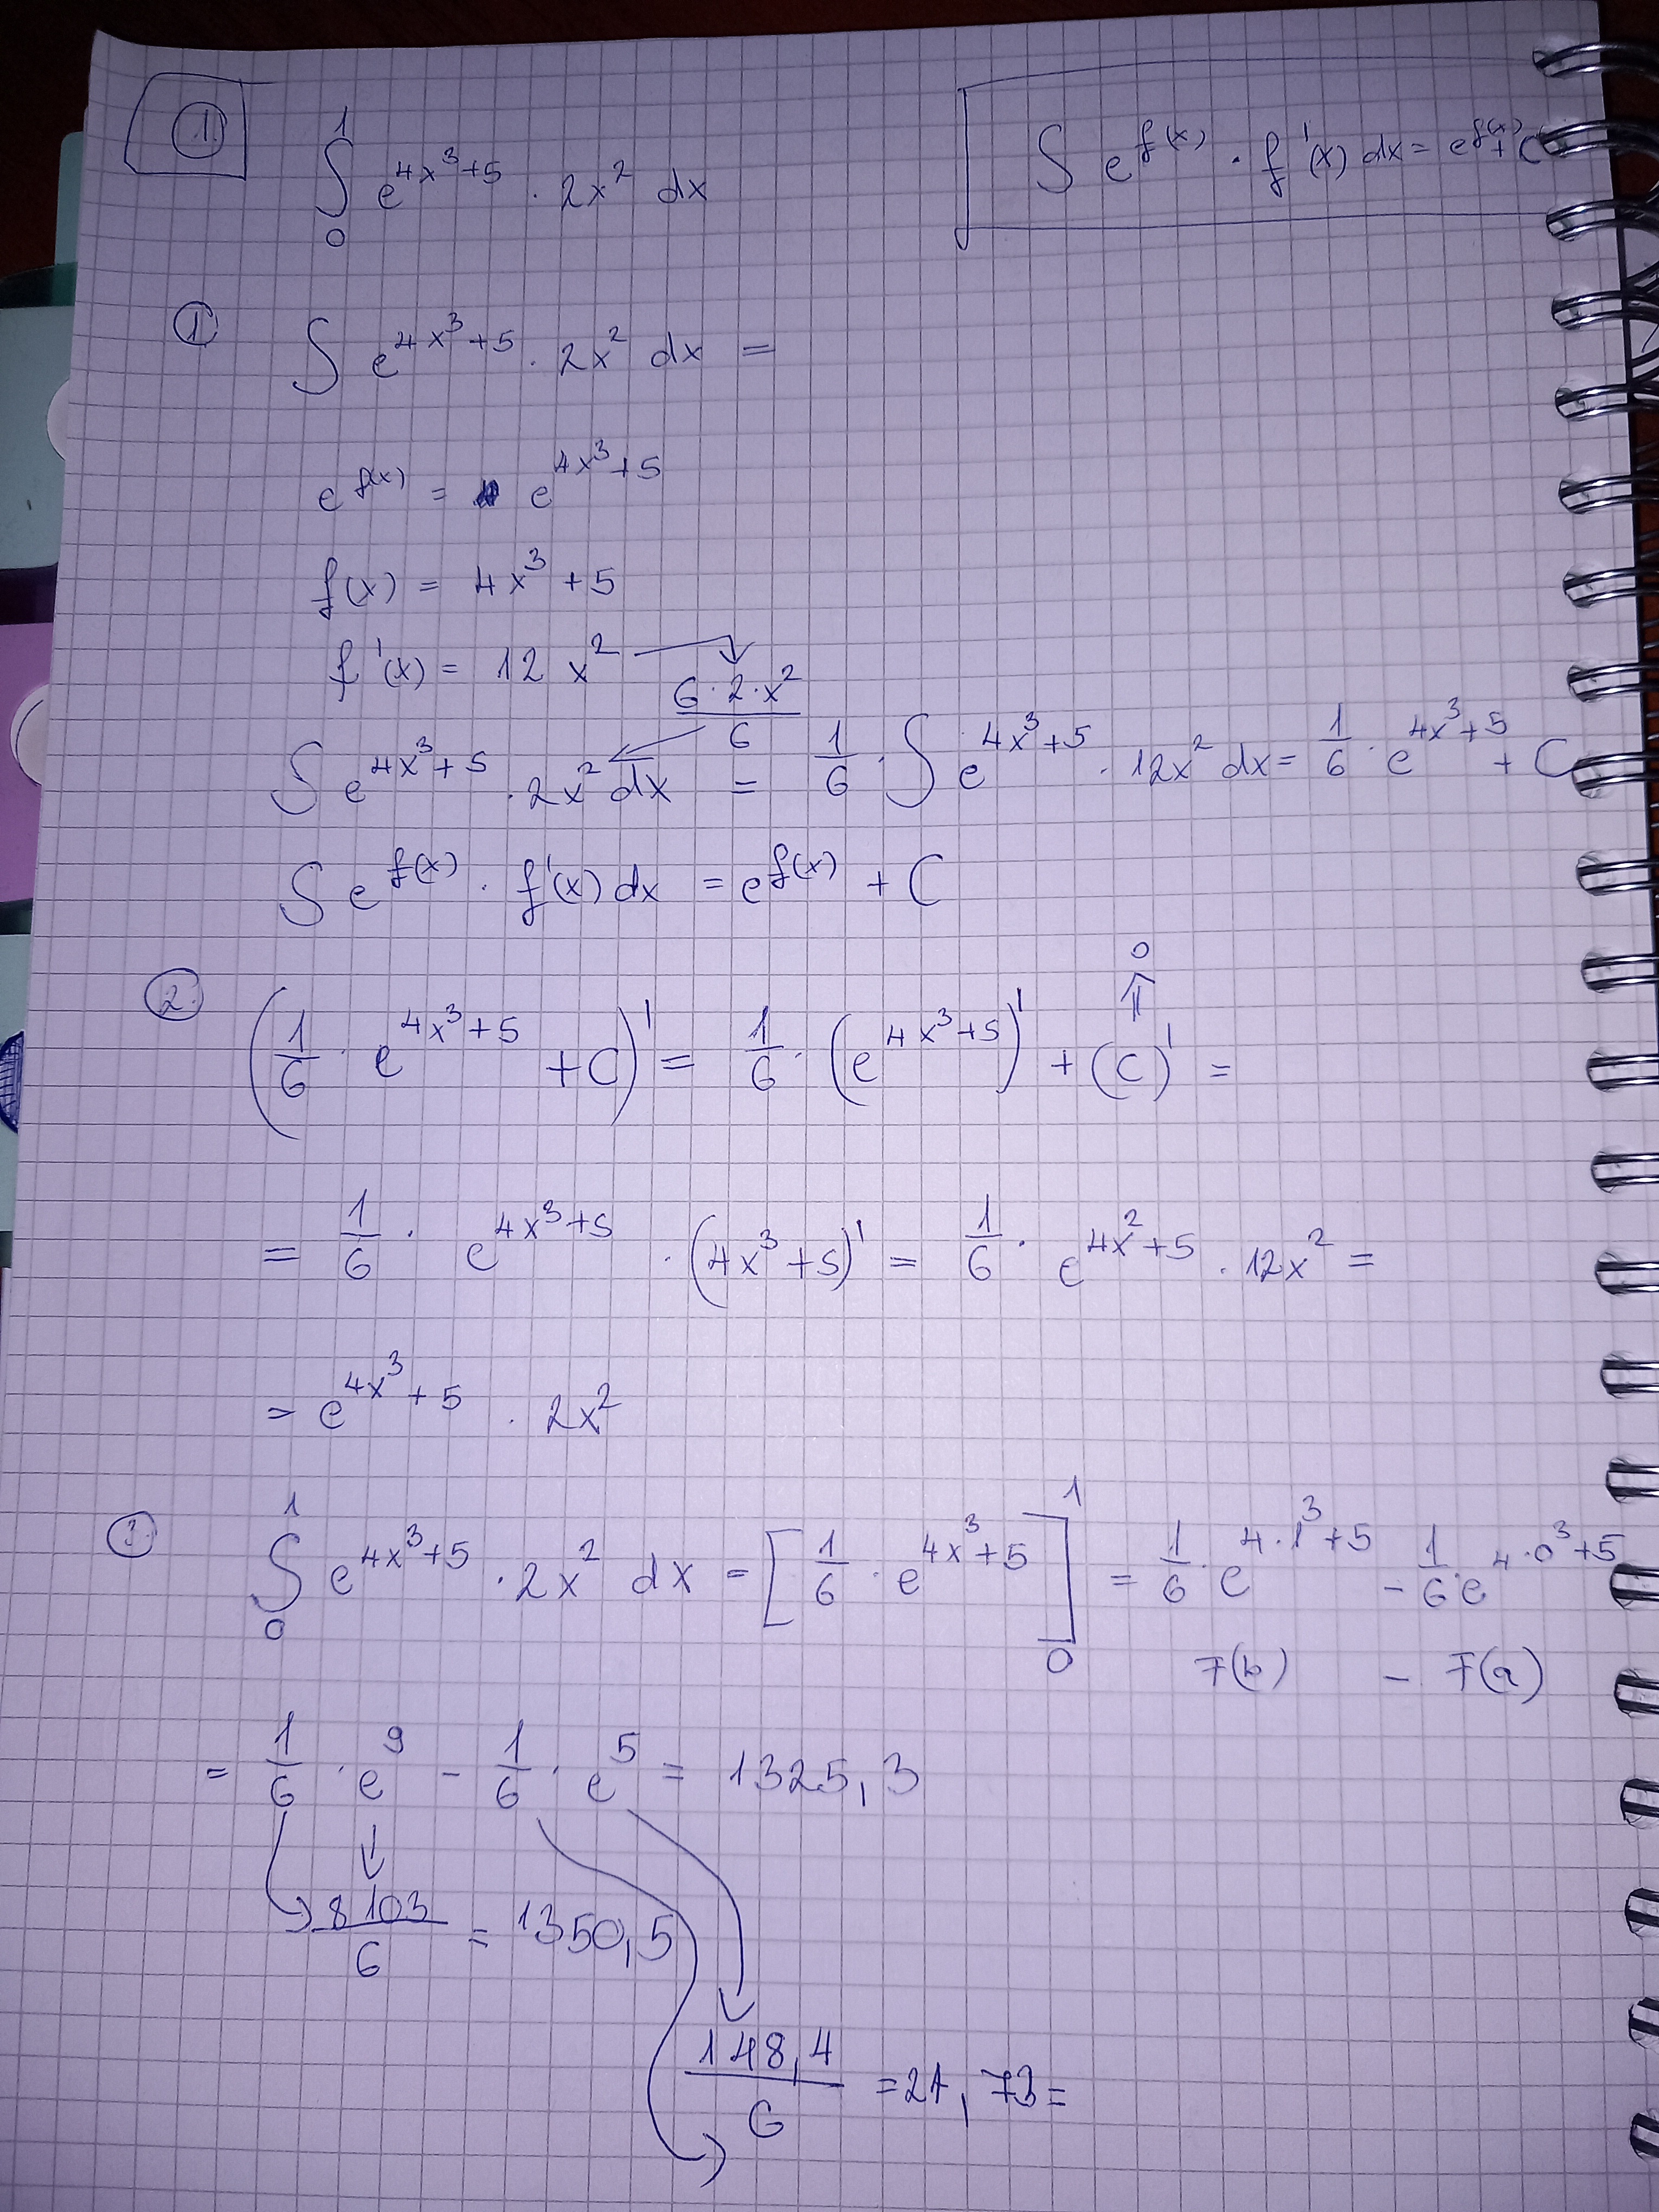 1.
∫₀¹ e^(4x³+5) · 2x² dx
∫ e^(f(x)) · f'(x) dx = e^(f(x)) + C
① ∫ e^(4x³+5) · 2x² dx =
e^(f(x)) = e^(4x³+5)
f(x) = 4x³ + 5
f'(x) = 12 x²
(6·2·x²)/6
∫ e^(4x³+5) · 2x² dx = 1/6 · ∫ e^(4x³+5) · 12x² dx = 1/6 · e^(4x³+5) + C
∫ e^(f(x)) · f'(x) dx = e^(f(x)) + C
0
⇑
②. (1/6 · e^(4x³+5) + C)' = 1/6 · (e^(4x³+5))' + (C)' =
= 1/6 · e^(4x³+5) · (4x³+5)' = 1/6 · e^(4x²+5) · 12x² =
= e^(4x³+5) · 2x²
③. ∫₀¹ e^(4x³+5) · 2x² dx = [1/6 · e^(4x³+5)]₀¹ = 1/6 · e^(4·1³+5) - 1/6 · e^(4·0³+5)
F(b) - F(a)
= 1/6 · e⁹ - 1/6 · e⁵ = 1325,3
8103/6 = 1350,5
148,4/6 = 24,73 =